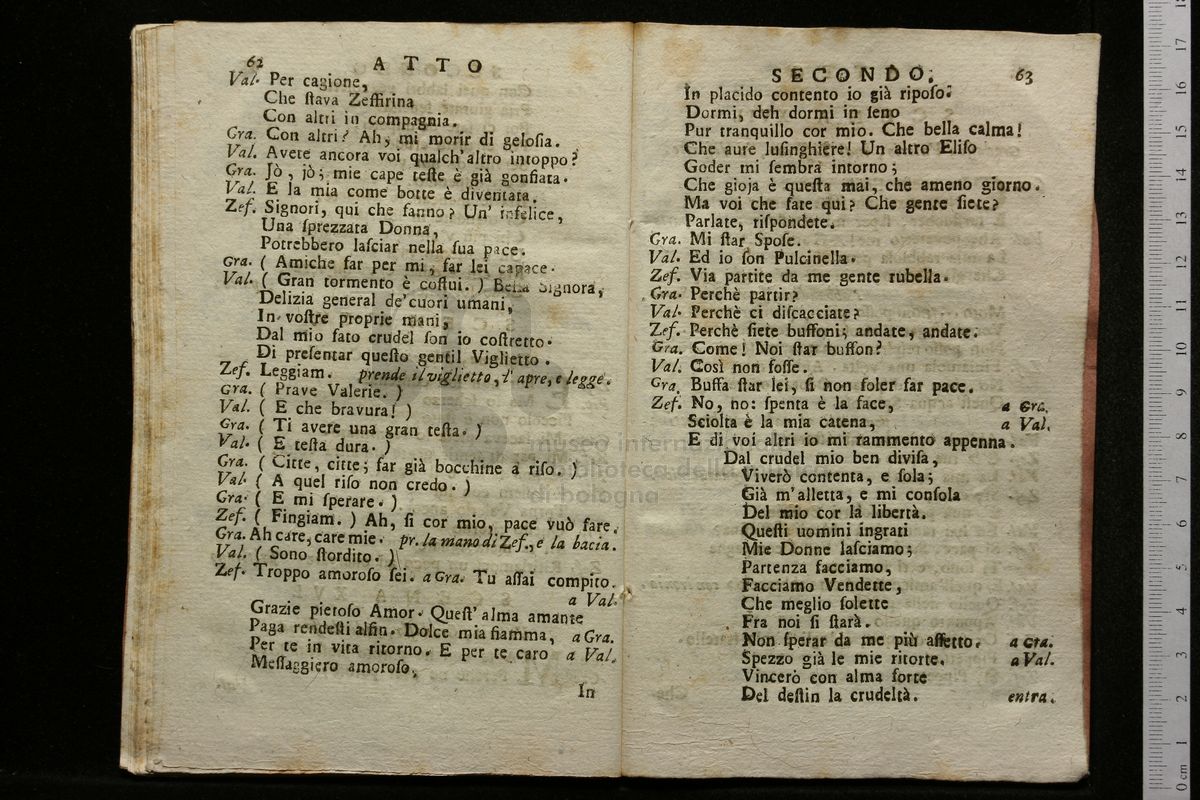 62 ATTO
Val. Per cagione,
Che ſtava Zeffirina
Con altri in compagnia.
Gra. Con altri? Ah, mi morir di geloſia.
Val. Avete ancora voi qualch'altro intoppo?
Gra. Jò, jò; mie cape teſte è già gonfiata.
Val. E la mia come botte è diventata.
Zef. Signori, qui che fanno? Un' infelice,
Una ſprezzata Donna,
Potrebbero laſciar nella ſua pace.
Gra. ( Amiche far per mi, far lei capace.
Val. ( Gran tormento è coſtui. ) Bella Signora,
Delizia general de'cuori umani,
In voſtre proprie mani,
Dal mio fato crudel ſon io coſtretto
Di preſentar queſto gentil Viglietto.
Zef. Leggiam. prende il viglietto, l'apre, e legge.
Gra. ( Prave Valerie. )
Val. ( E che bravura! )
Gra. ( Ti avere una gran teſta. )
Val. ( E teſta dura. )
Gra. ( Citte, citte; far già bocchine a riſo. )
Val. ( A quel riſo non credo. )
Gra. ( E mi ſperare. )
Zef. ( Fingiam. ) Ah, ſi cor mio, pace vuò fare.
Gra. Ah care, care mie. pr. la mano di Zef., e la bacia.
Val. ( Sono ſtordito. )
Zef. Troppo amoroſo ſei. a Gra. Tu aſſai compito.
a Val.
Grazie pietoſo Amor. Queſt'alma amante
Paga rendeſti alfin. Dolce mia fiamma, a Gra.
Per te in vita ritorno. E per te caro a Val.
Meſſaggiero amoroſo,
In
SECONDO. 63
In placido contento io già ripoſo:
Dormi, deh dormi in ſeno
Pur tranquillo cor mio. Che bella calma!
Che aure luſinghiere! Un altro Eliſo
Goder mi ſembra intorno;
Che gioja è queſta mai, che ameno giorno.
Ma voi che fate qui? Che gente ſiete?
Parlate, riſpondete.
Gra. Mi ſtar Spoſe.
Val. Ed io ſon Pulcinella.
Zef. Via partite da me gente rubella.
Gra. Perchè partir?
Val. Perchè ci diſcacciate?
Zef. Perchè ſiete buffoni; andate, andate.
Gra. Come! Noi ſtar buffon?
Val. Così non foſſe.
Gra. Buffa ſtar lei, ſi non ſoler far pace.
Zef. No, no: ſpenta è la face, a Gra.
Sciolta è la mia catena, a Val.
E di voi altri io mi rammento appenna.
Dal crudel mio ben diviſa,
Viverò contenta, e ſola;
Già m'alletta, e mi conſola
Del mio cor la libertà.
Queſti uomini ingrati
Mie Donne laſciamo;
Partenza facciamo,
Facciamo Vendette,
Che meglio ſolette
Fra noi ſi ſtarà.
Non ſperar da me più affetto. a Gra.
Spezzo già le mie ritorte. a Val.
Vincerò con alma forte
Del deſtin la crudeltà. entra.